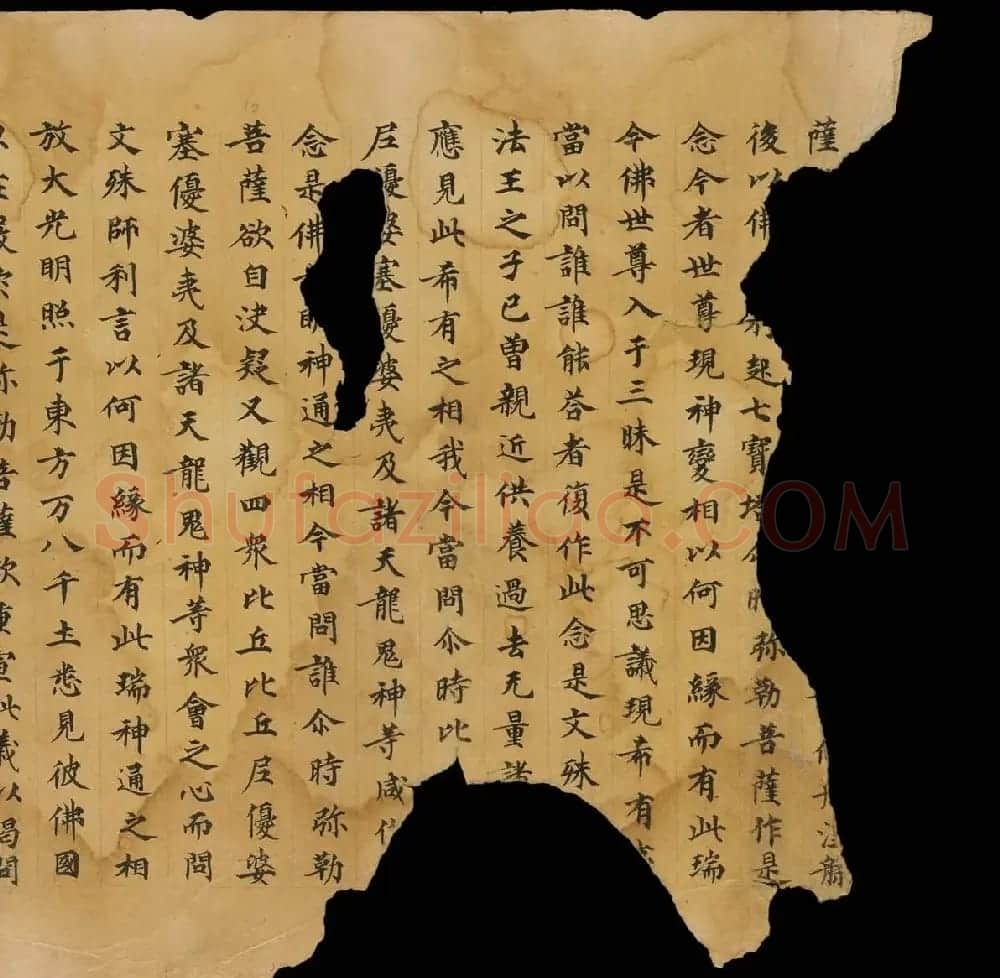 薩
後以佛起七寶塔弥勒菩薩作是
念今者世尊現神變相以何因緣而有此瑞
今佛世尊入于三昧是不可思議現希有
當以問誰誰能荅者復作此念是文殊
法王之子已曾親近供養過去无量諸
應見此希有之相我今當問尒時比
尼優婆塞優婆夷及諸天龍鬼神等咸
念是佛明神通之相今當問誰尒時弥勒
菩薩欲自决疑又觀四衆比丘比丘尼優婆
塞優婆夷及諸天龍鬼神等衆會之心而問
文殊師利言以何因緣而有此瑞神通之相
放大光明照于東方万八千土悉見彼佛國
是弥勒菩薩欲重宣此義以偈問
Shufaziliao.COM